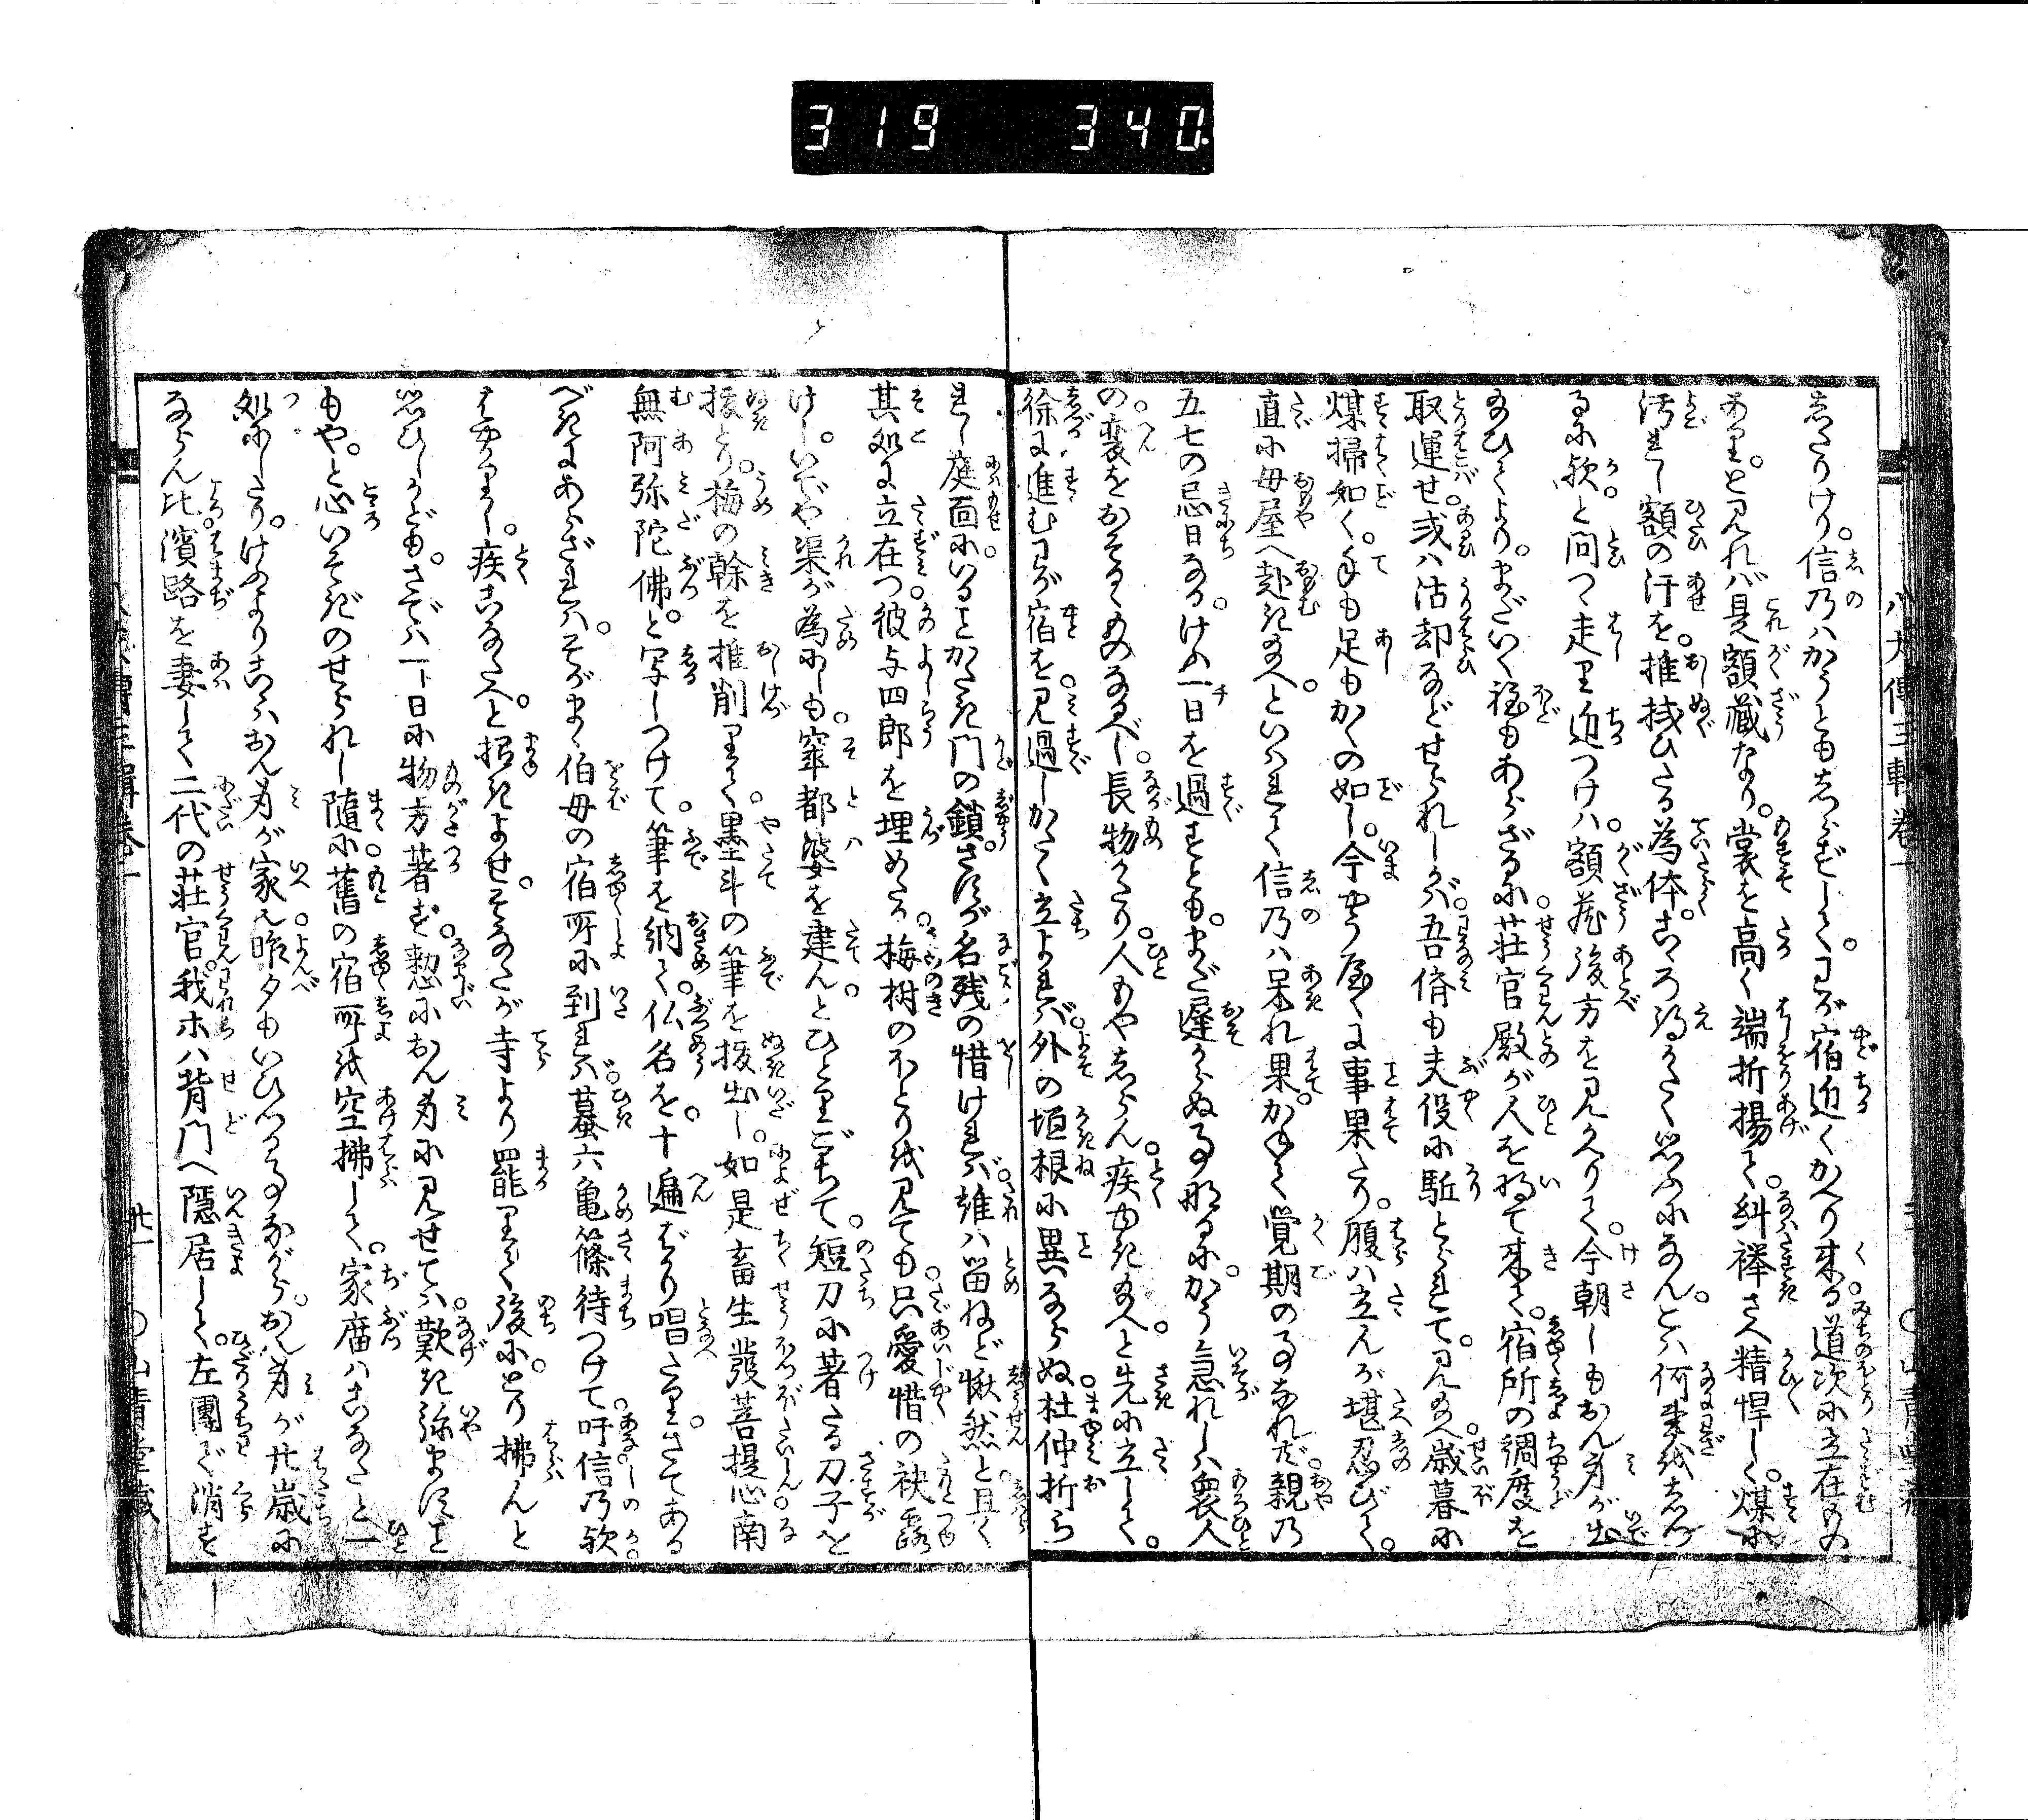 319 340.
したりけり。信乃ハかうともしらずして。わが宿近くかへり来る道次に立在もの
あり。と見れバ是額蔵なり。裳を高く端折揚て。糾襷さへ精悍しく。煤に
汚れし額の汗を。推拭ひたる為体。こゝろ得がたく思ふになん。とハ何事をしつ
るに歟と問つゝ走り近つけハ。額蔵後方を見かへりて。今朝しもおん身が出
給ひしより。まだいく程もあらざるに。荘官殿が人を将て来て。宿所の調度を
取運せ。或ハ沽却などせられしかバ。吾儕も夫役に駈とられて。見給へ歳暮に
煤掃如く。手も足もかくの如し。今やうやくに事果たり。腹ハ立んが堪忍びて。
直に母屋へ赴き給へ。といハれて信乃ハ呆れ果。かねて覚期の事なれど。親の
五七の忌日なる。けふ一日を過すとも。まだ遅からぬ事なるに。かう急れしハ衆人
の。変をおそるゝものなるべし。長物かたり人もやしらん。疾ゆき給へ。と先に立して。
徐に進むわが宿を。見過しかたく立よれバ。外の垣根に異ならぬ。杜仲折ら
れし庭面に。いること かたき門の鎖。さすが名残の惜けれバ。誰ハ留ねど愀然と。且く
其処に立在つ。彼与四郎を埋めたる。梅樹のほとりを見ても。只愛惜の袂露
けし。いでや渠が為にしも。率都婆を建んとひとりごちて。短刀に著たる刀子を
抜とり。梅の幹を推削りて。墨斗の筆を抜出し。如是畜生発菩提心。南
無阿弥陀佛。と写しつけて。筆を納て。仏名を。十遍ばかり唱たり。さてある
べきにあらざれハ。そがまゝ伯母の宿所に到れバ。蟇六亀篠待つけて。吁信乃歟。
はやかりし。疾こなたへ。と招きよせ。そなたが寺より罷りて後に。とり拂んと
思ひしかども。さでハ一ト日に物方著ず。憖におん身に見せてハ。歎き弥ますこと
もや。と心いそぎのせられし随に。舊の宿所を空拂して。家廟ハこなたと一
処にしたり。けふよりこゝハおん身が家也。昨夕もいひつる事ながら。おん身が廿歳に
ならん比。濱路を妻して二代の荘官。我ホハ背門へ隠居して。左團で消を
八犬傳三輯卷一
廿一
山青堂藏